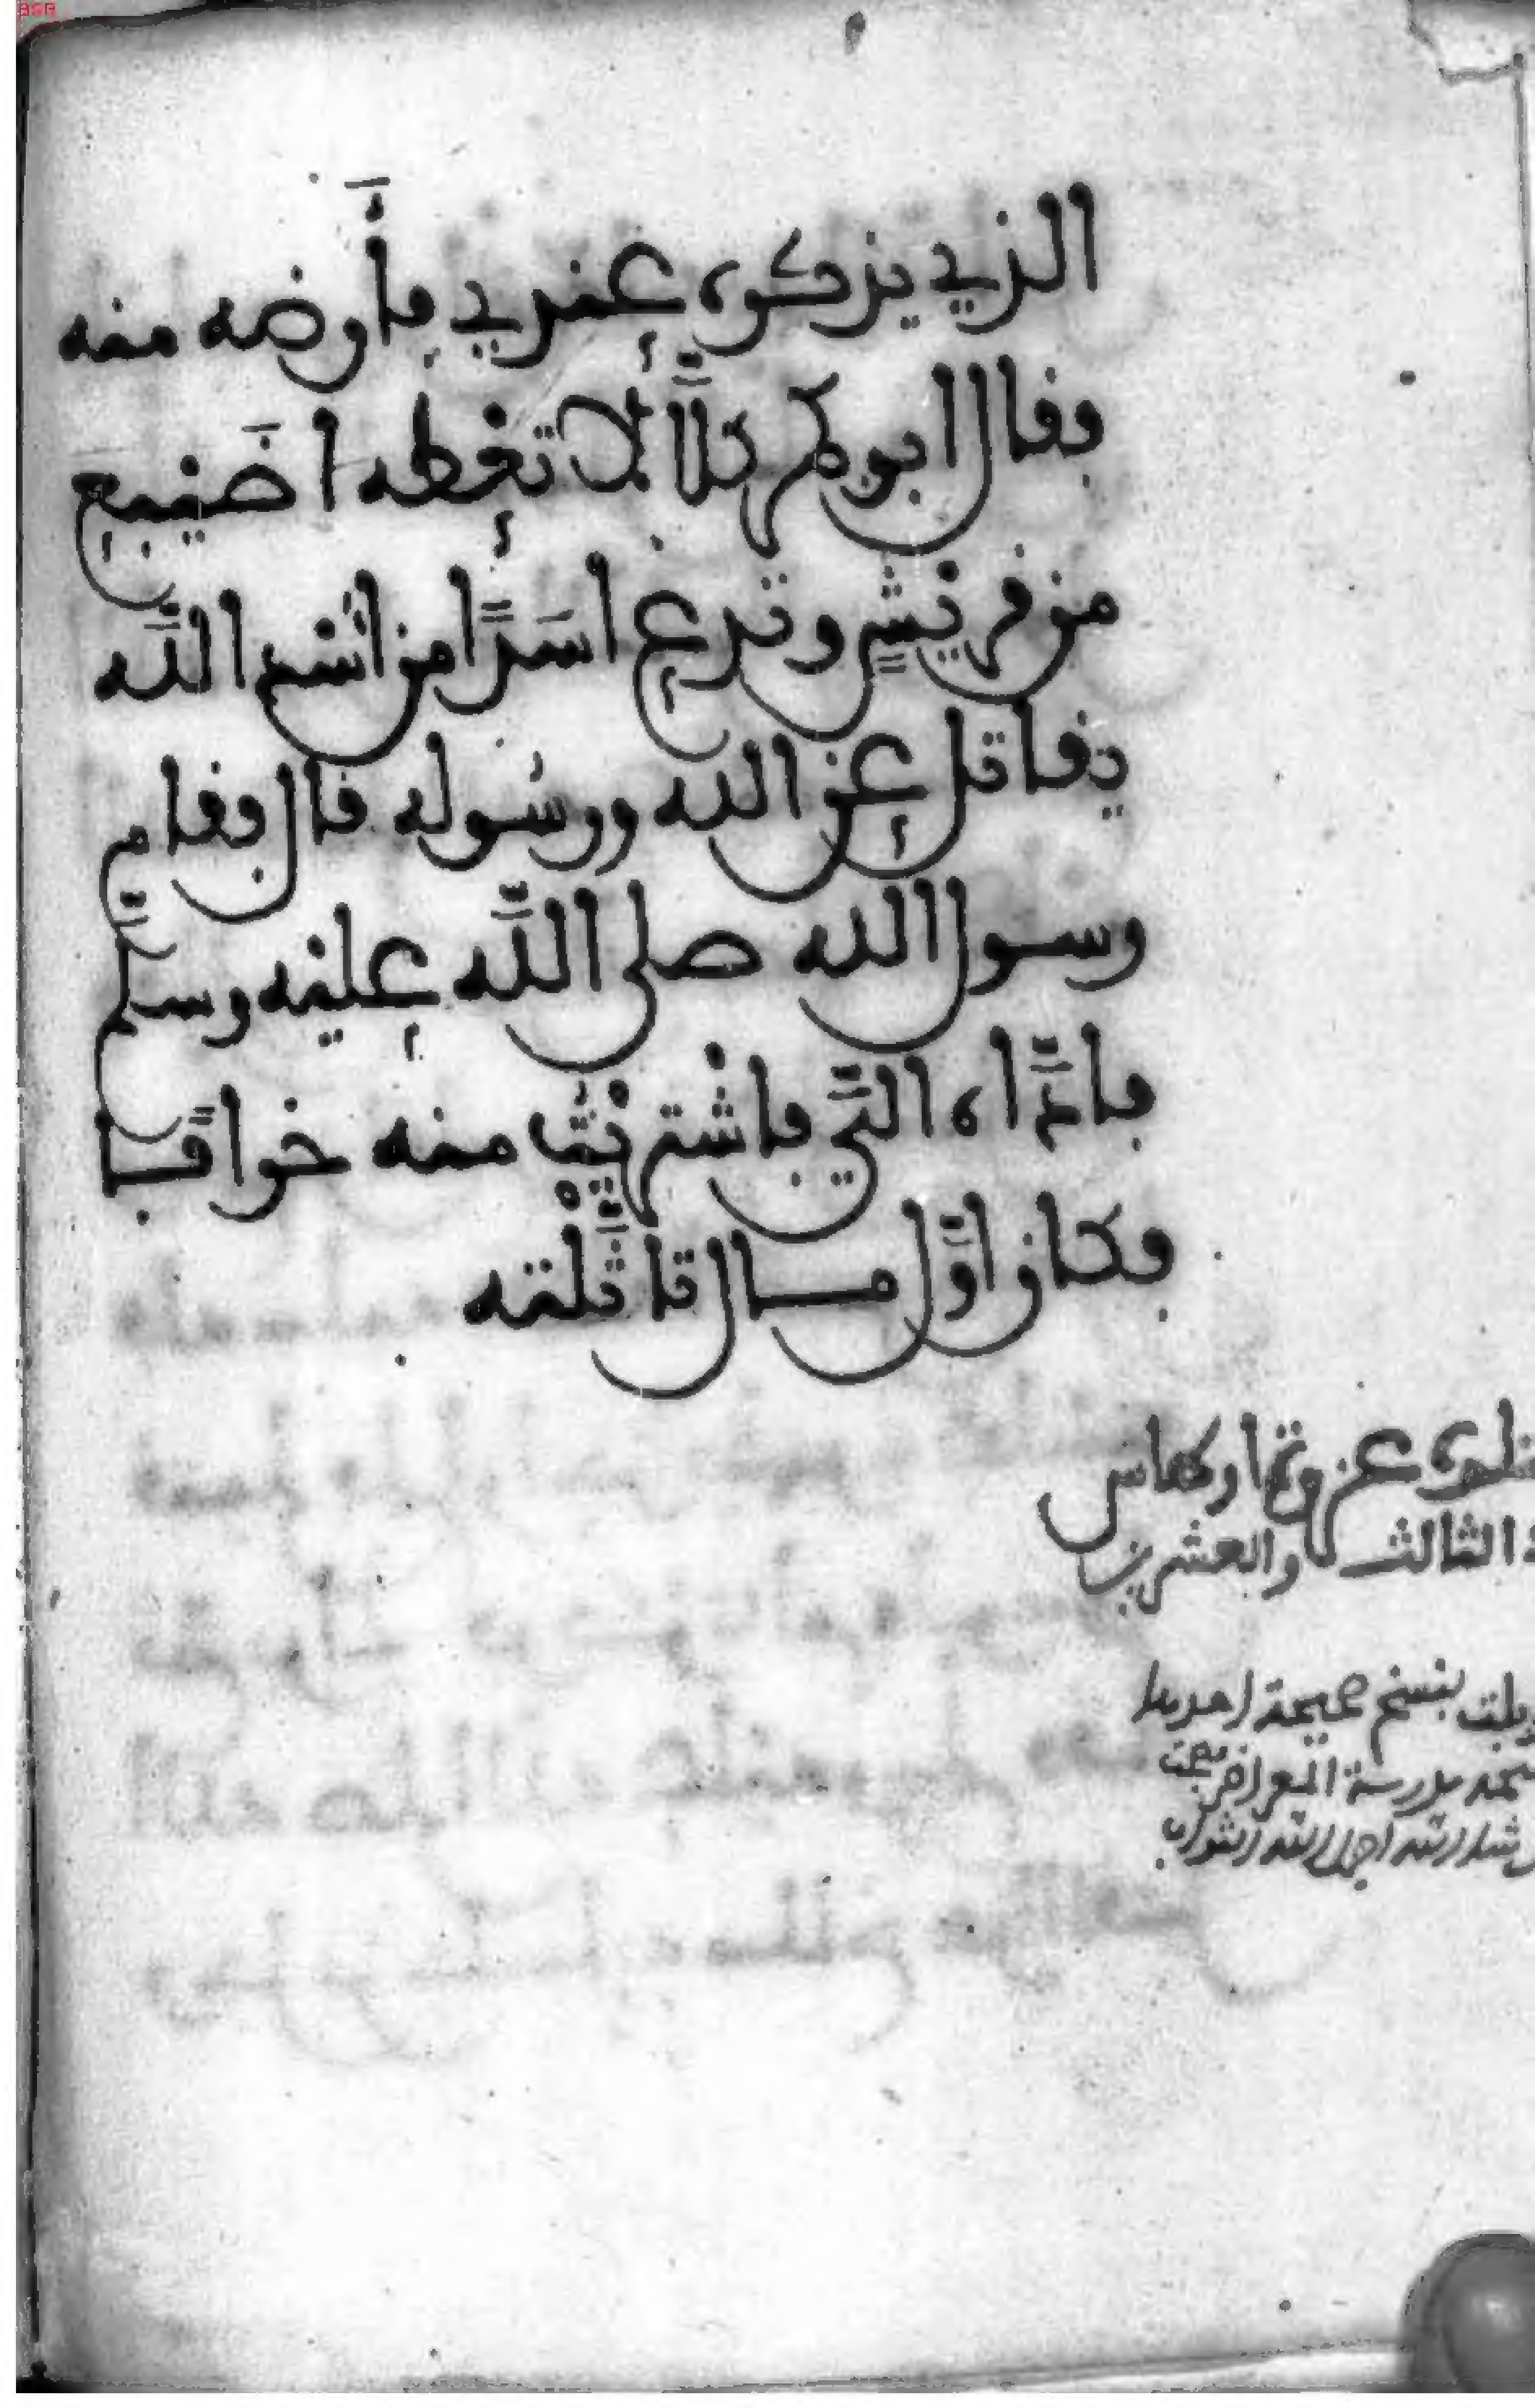 الذي يذكر عندي فأرضه منه
فقال ابو بكر كلَّا لا تعطه اضيبع
من قريشٍ وتدع اسدًا من اسْد اللَّه
يقاتل عن الله ورسوله قال فقام
رسول الله صلى اللَّه عليه وسلَّم
فادَّاه الىَّ فاشتريْتُ منه خرافًا
فكان اوَّل مال تاثَّلْته
عن وتما وكعاس
الثالث والعشرين
بنسخ صحيحة احديها
بمدرسة
BSB